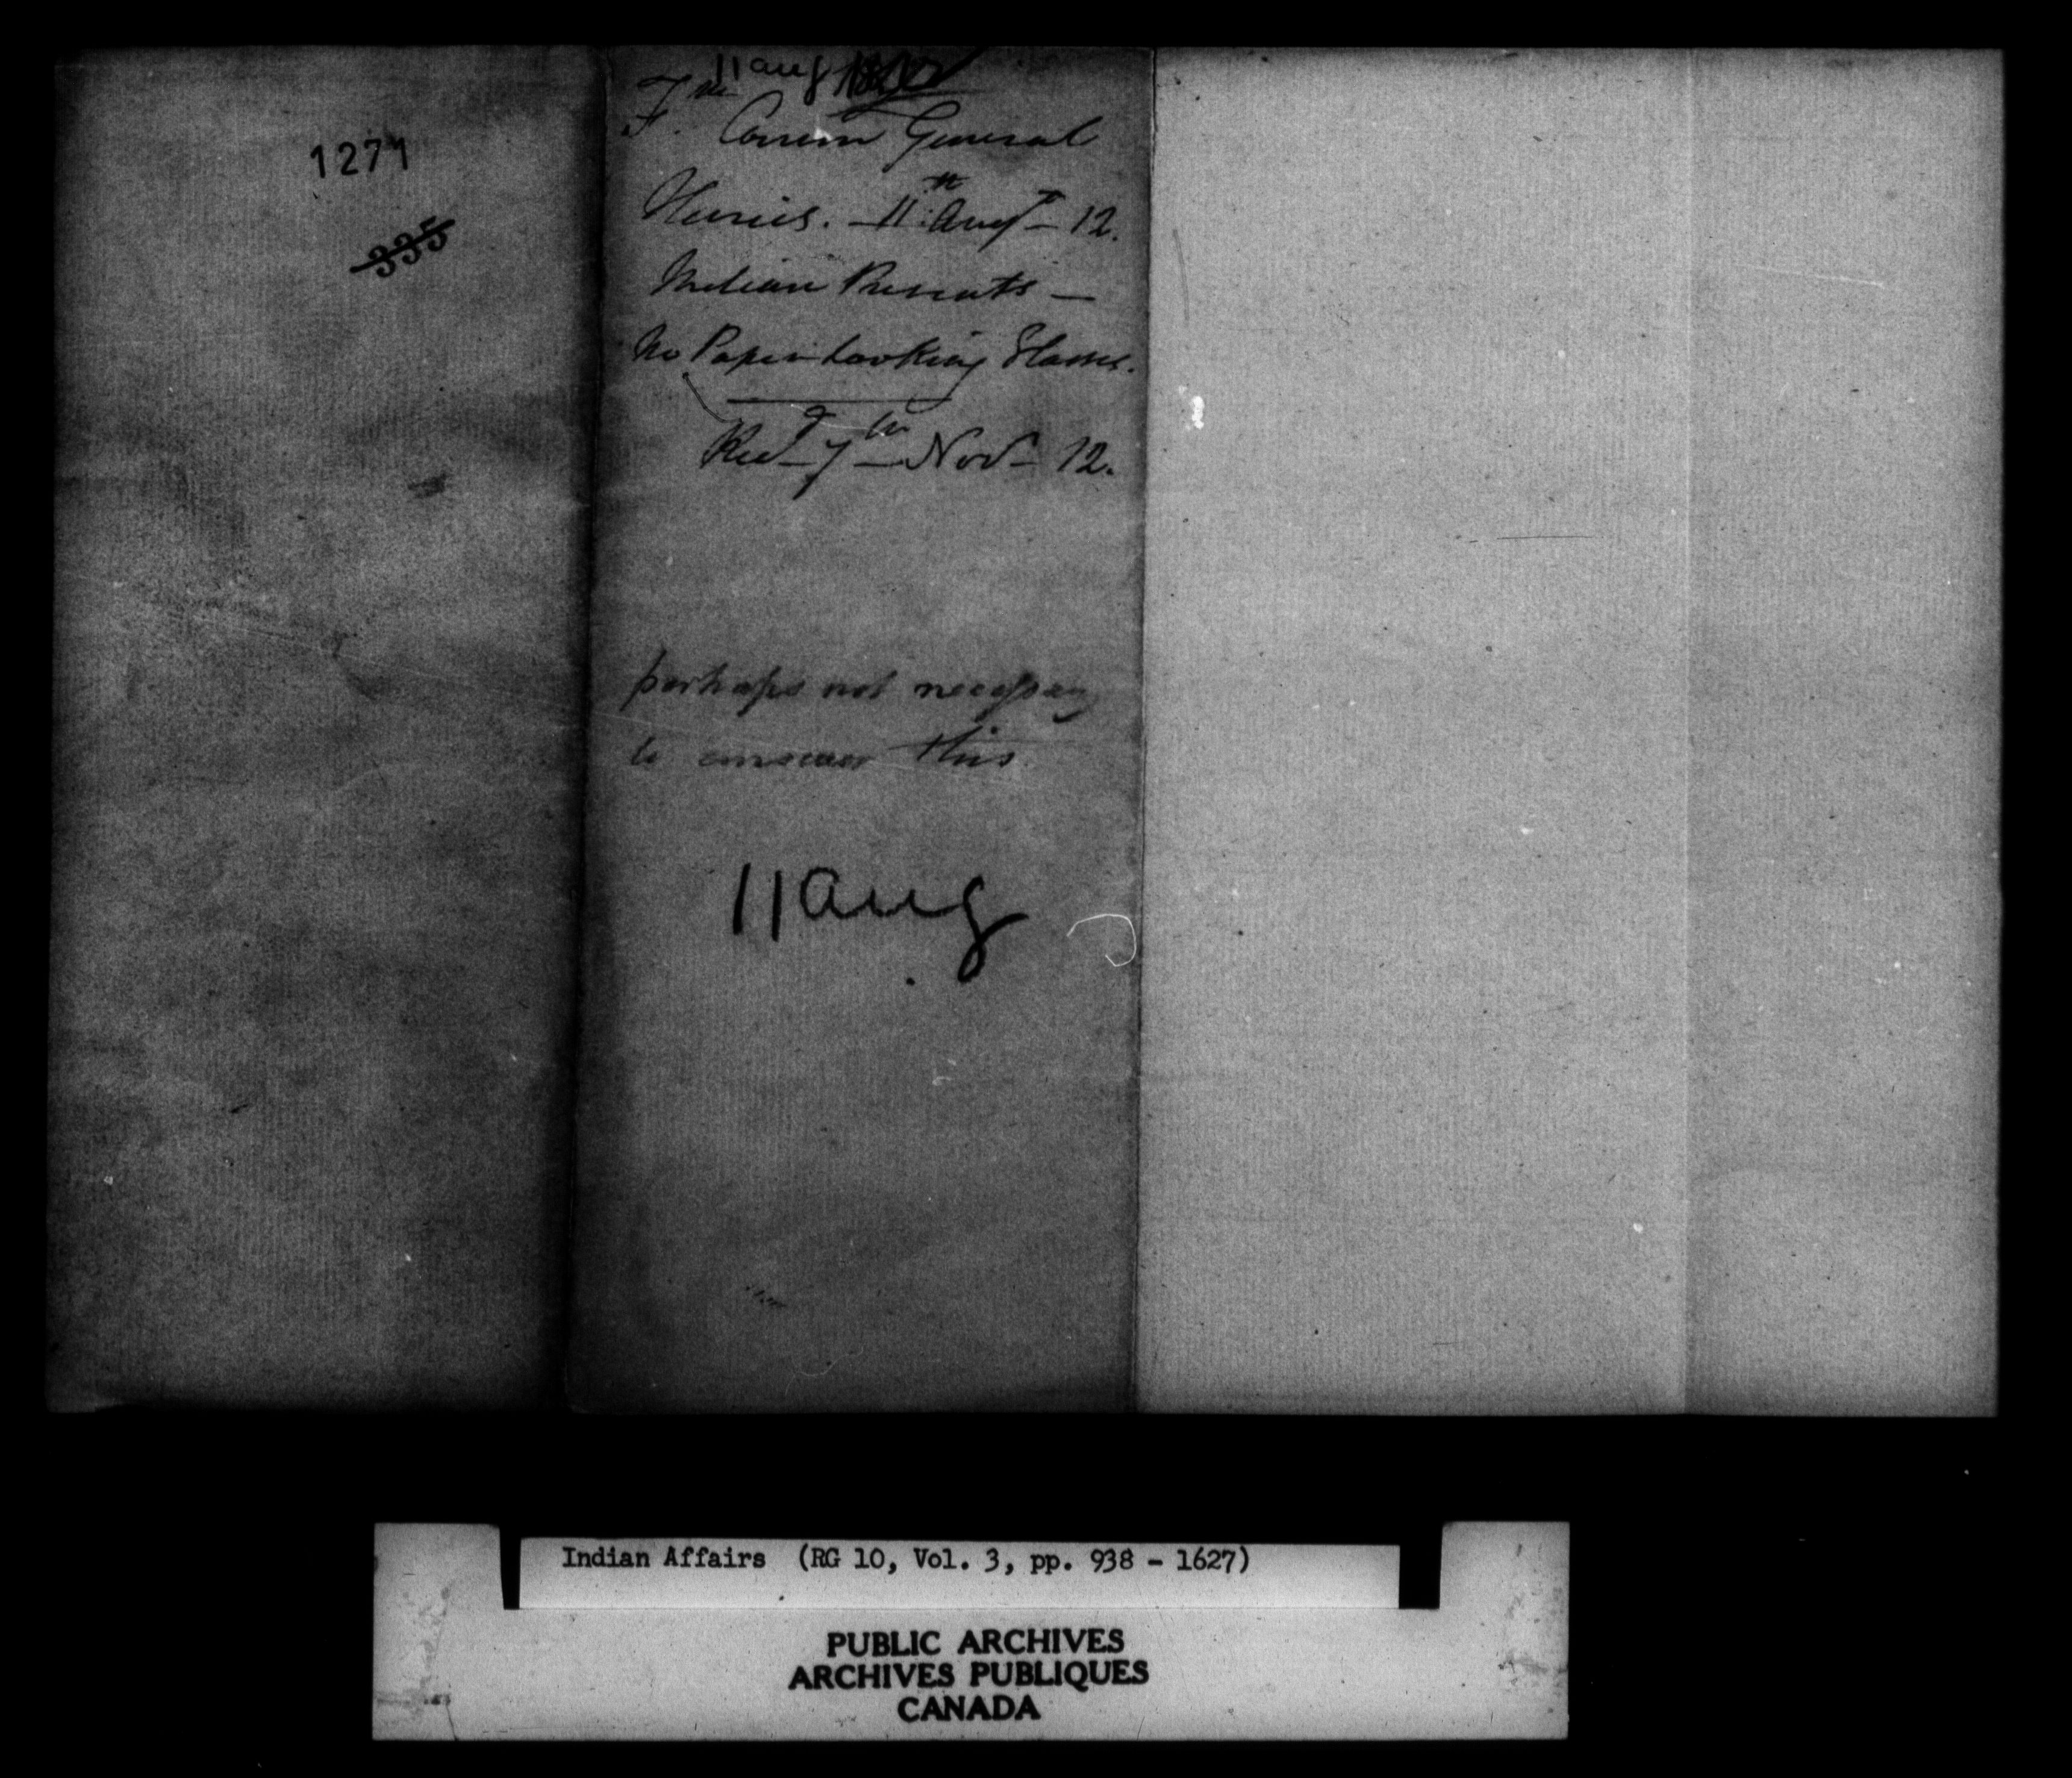 1271
335
11 aug
Fm
F. Comm General
Herries. - 11th Augt - 12.
Indian Presents -
No Paper Looking Glasses.
Recd 7th Nov - 12.
perhaps not necessary
to answer this
11 aug
Indian Affairs (RG 10, Vol. 3, pp. 938 - 1627)
PUBLIC ARCHIVES
ARCHIVES PUBLIQUES
CANADA